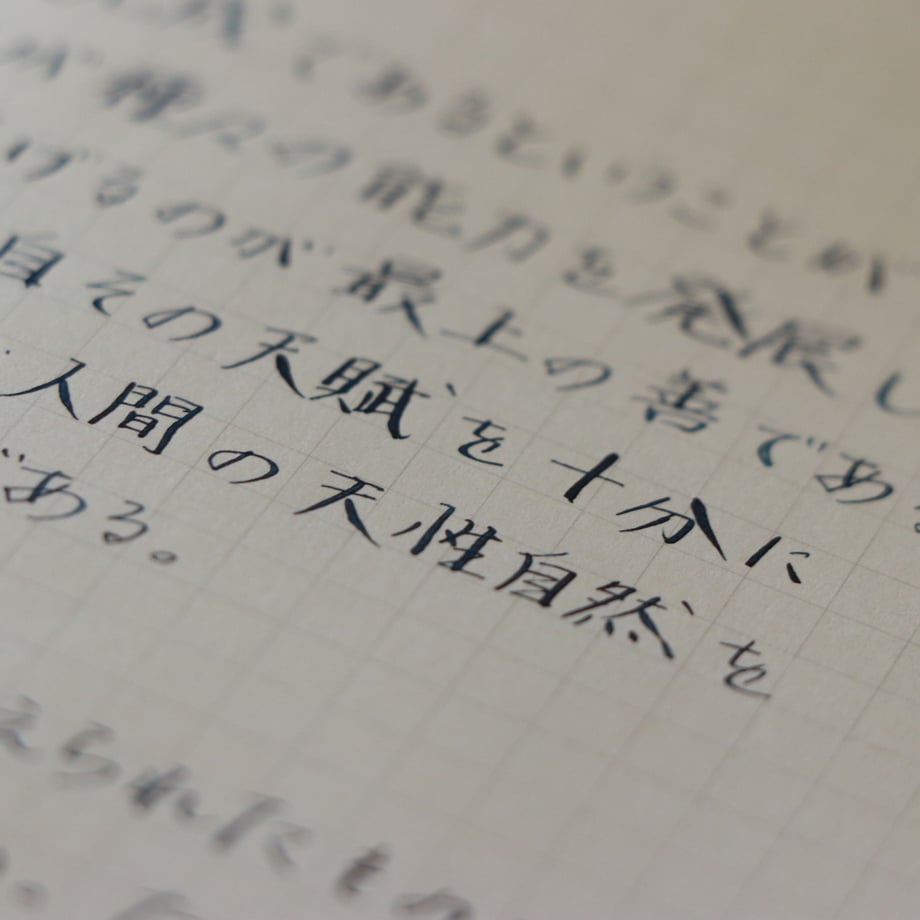 であるということが
が種々の能力を発展し
げるのが最上の善であ
自その天賦を十分に
人間の天性自然を
である。
えられたもの